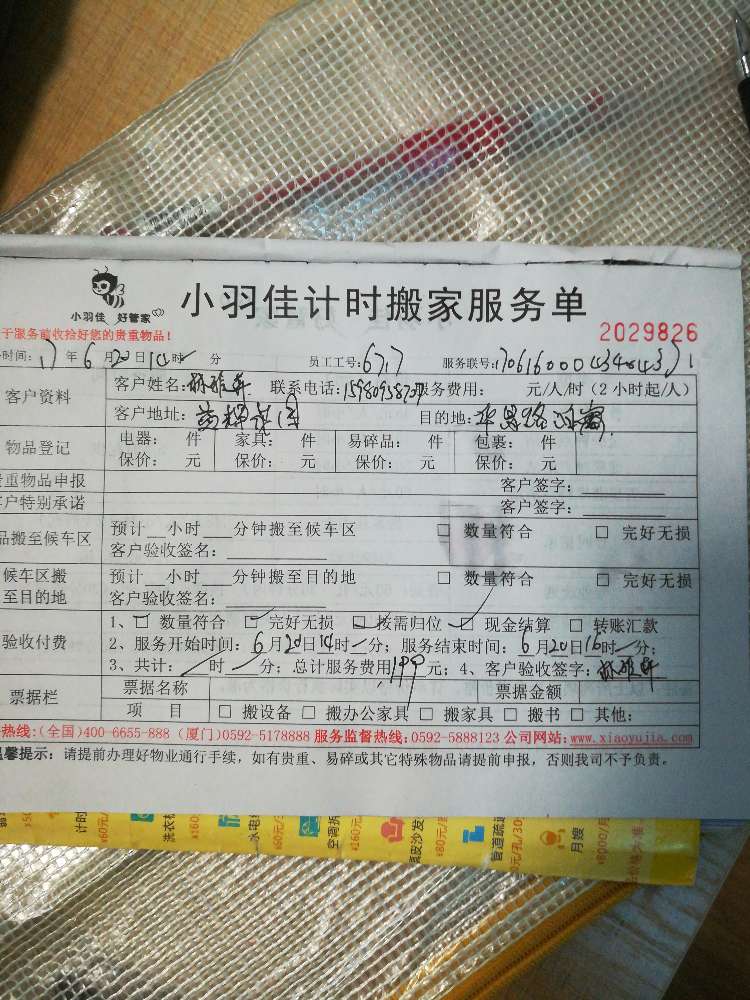 小羽佳 好管家
小羽佳计时搬家服务单
于服务前收拾好您的贵重物品!
2029826
时间: 17年6月20日14时 分 员工工号: 服务联号:
客户资料
客户姓名: 联系电话: 服务费用: 元/人/时(2小时起/人)
客户地址: 目的地:
物品登记
电器: 件 家具: 件 易碎品: 件 包裹: 件
保价: 元 保价: 元 保价: 元 保价: 元
重物品申报 客户签字:
户特别承诺 客户签字:
品搬至候车区
预计__小时__分钟搬至候车区 □ 数量符合 □ 完好无损
客户验收签名:
候车区搬
至目的地
预计__小时__分钟搬至目的地 □ 数量符合 □ 完好无损
客户验收签名:
验收付费
1、□ 数量符合 □ 完好无损 □ 按需归位 □ 现金结算 □ 转账汇款
2、服务开始时间: 6月20日14时 分; 服务结束时间: 6月20日16时 分;
3、共计: 时 分; 总计服务费用199元; 4、客户验收签字:
票据栏
票据名称 票据金额
项 目 □ 搬设备 □ 搬办公家具 □ 搬家具 □ 搬书 □ 其他:
热线:(全国)400-6655-888 (厦门)0592-5178888 服务监督热线:0592-5888123 公司网站:www.xiaoyujia.com
温馨提示: 请提前办理好物业通行手续, 如有贵重、易碎或其它特殊物品请提前申报, 否则我司不予负责。
计时
¥60元/
洗衣机
¥160
水电
¥60元/
空调拆
¥160元
真皮沙发
¥80元/
管道疏通
元/孔/30
月嫂
¥8000/月